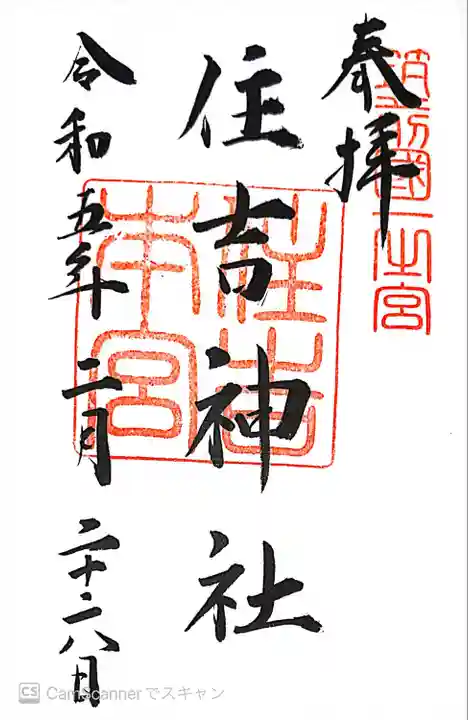 奉拝
筑前國一之宮
住吉神社
住吉本宮
令和五年二月二十二八日
CS CamScannerでスキャン